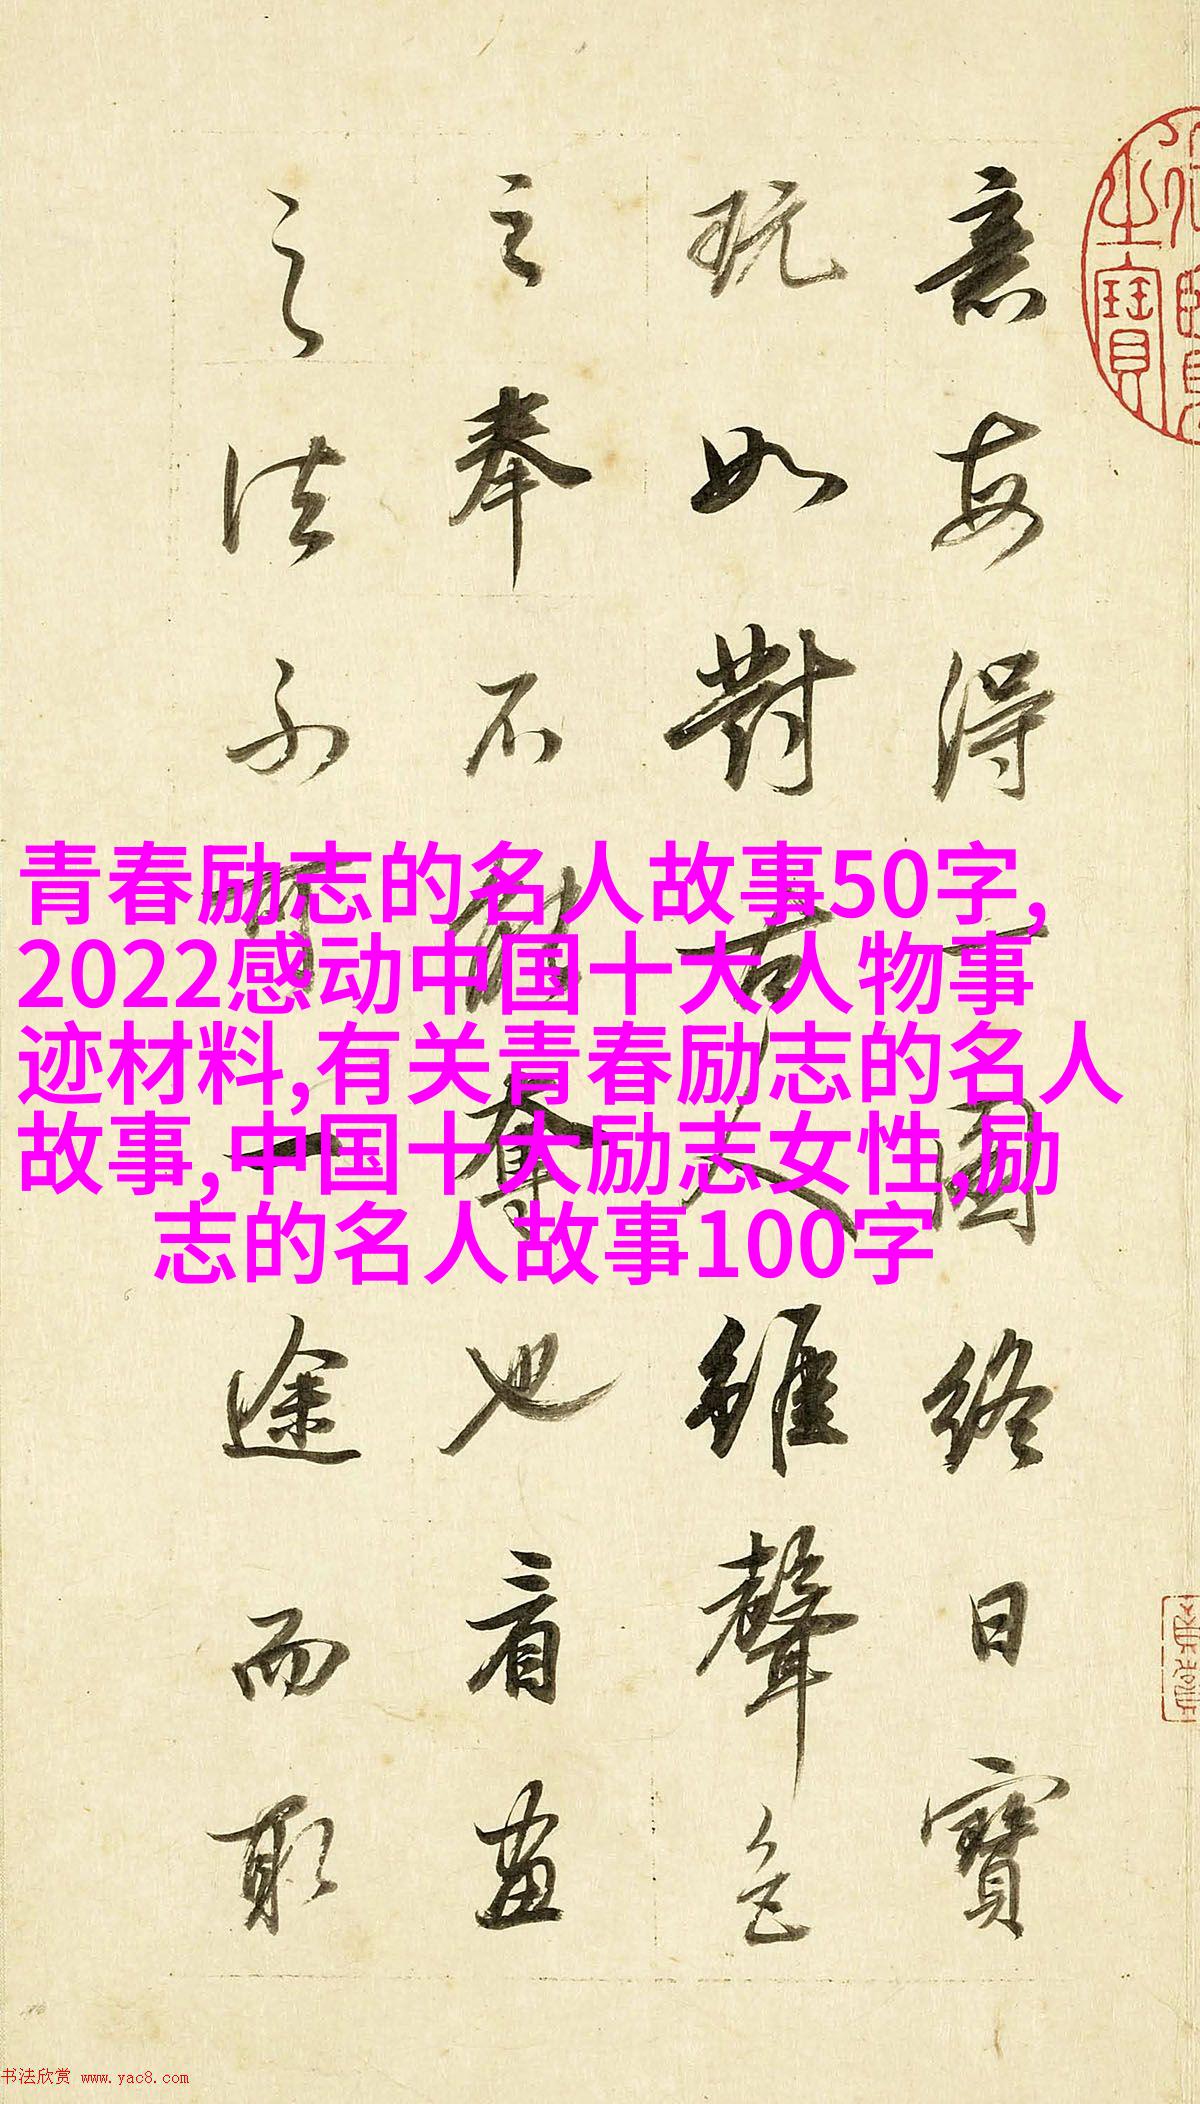 意每得一圖終日寶
玩如對古人雖聲色
之奉不能奪也看畫
之法不可一途而取
青春励志的名人故事50字,
2022感动中国十大人物事
迹材料,有关青春励志的名人
故事,中国十大励志女性,励
志的名人故事100字
之寶
书法欣赏 www.yac8.com